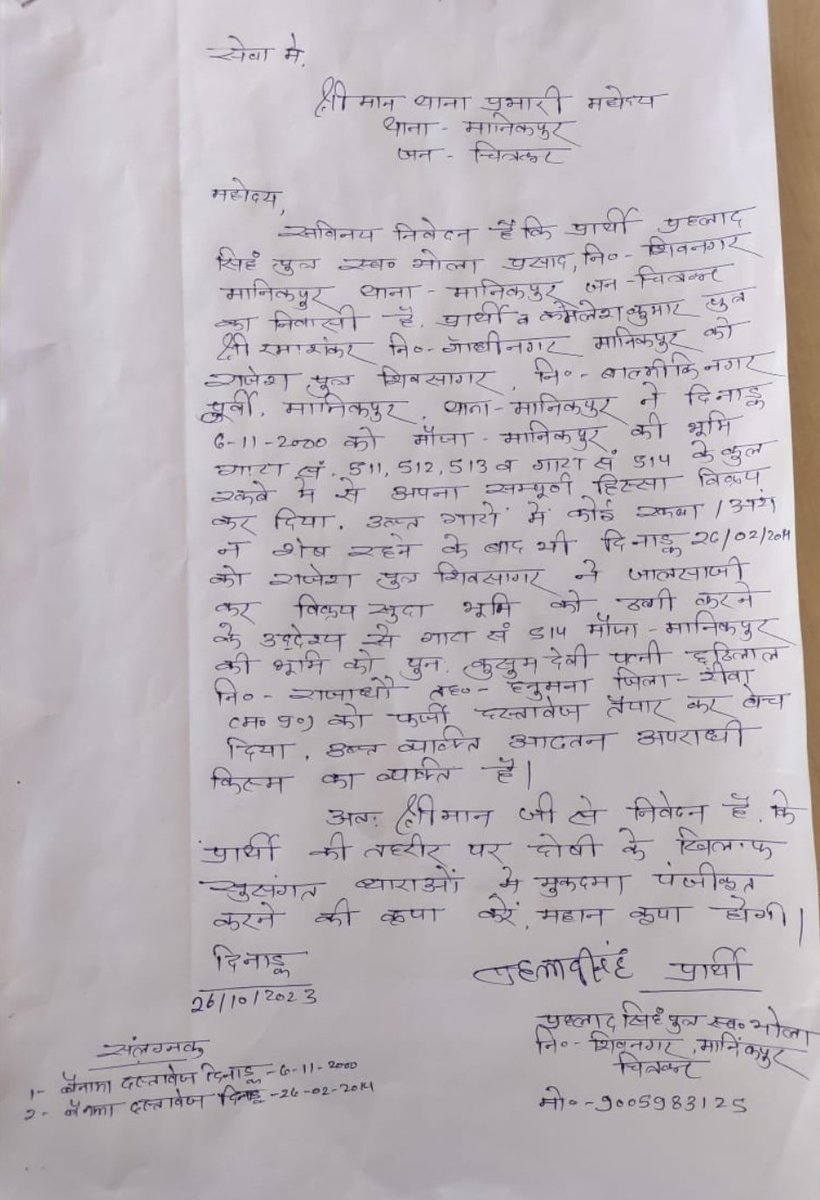 सेवा मे,
श्रीमान थाना प्रभारी महोदय
थाना - मानिकपुर
जन - चित्रकूट
महोदय,
सविनय निवेदन है कि प्रार्थी प्रहलाद
सिहं पुत्र स्व० भोला प्रसाद, नि०- शिवनगर
मानिकपुर थाना - मानिकपुर जन - चित्रकूट
का निवासी है. प्रार्थी व कमलेश कुमार पुत्र
श्री रमाशंकर नि०- गाँधीनगर मानिकपुर को
राजेश पुत्र शिवसागर, नि०- बाल्मीकि नगर
पूर्वी, मानिकपुर, थाना-मानिकपुर ने दिनाङ्क
6-11-2000 को मौजा - मानिकपुर की भूमि
गाटा सं. 511, 512, 513 व गाटा सं 514 के कुल
रकबे मे से अपना सम्पूर्ण हिस्सा विक्रय
कर दिया. उक्त गाटों में कोई रकबा / अंश
न शेष रहने के बाद भी दिनाङ्क 26/02/2014
को राजेश पुत्र शिवसागर ने जालसाजी
कर विक्रय सुदा भूमि को ठगी करने
के उद्देश्य से गाटा सं 514 मौजा - मानिकपुर
की भूमि को पुन. कुसुम देवी पत्नी छुटिलाल
नि०- राजाधौ तह०- हनुमना जिला - रीवा
(म० प्र०) को फर्जी दस्तावेज तैयार कर बेच
दिया. उक्त व्यक्ति आदतन अपराधी
किस्म का व्यक्ति है|
अतः श्रीमान जी से निवेदन है. कि
प्रार्थी की तहरीर पर दोषी के खिलाफ
सुसंगत धाराओं मे मुकदमा पंजीकृत
करने की कृपा करें, महान कृपा होगी|
दिनाङ्क
26/10/2023
प्रहलादसिंह प्रार्थी
प्रहलाद सिहं पुत्र स्व० भोला
नि०- शिवनगर, मानिकपुर
चित्रकूट
मो०-9005983125
संलग्नक
1- बैनामा दस्तावेज दिनाङ्क -6-11-2000
2- बैनामा दस्तावेज दिनाङ्क -26-02-2014